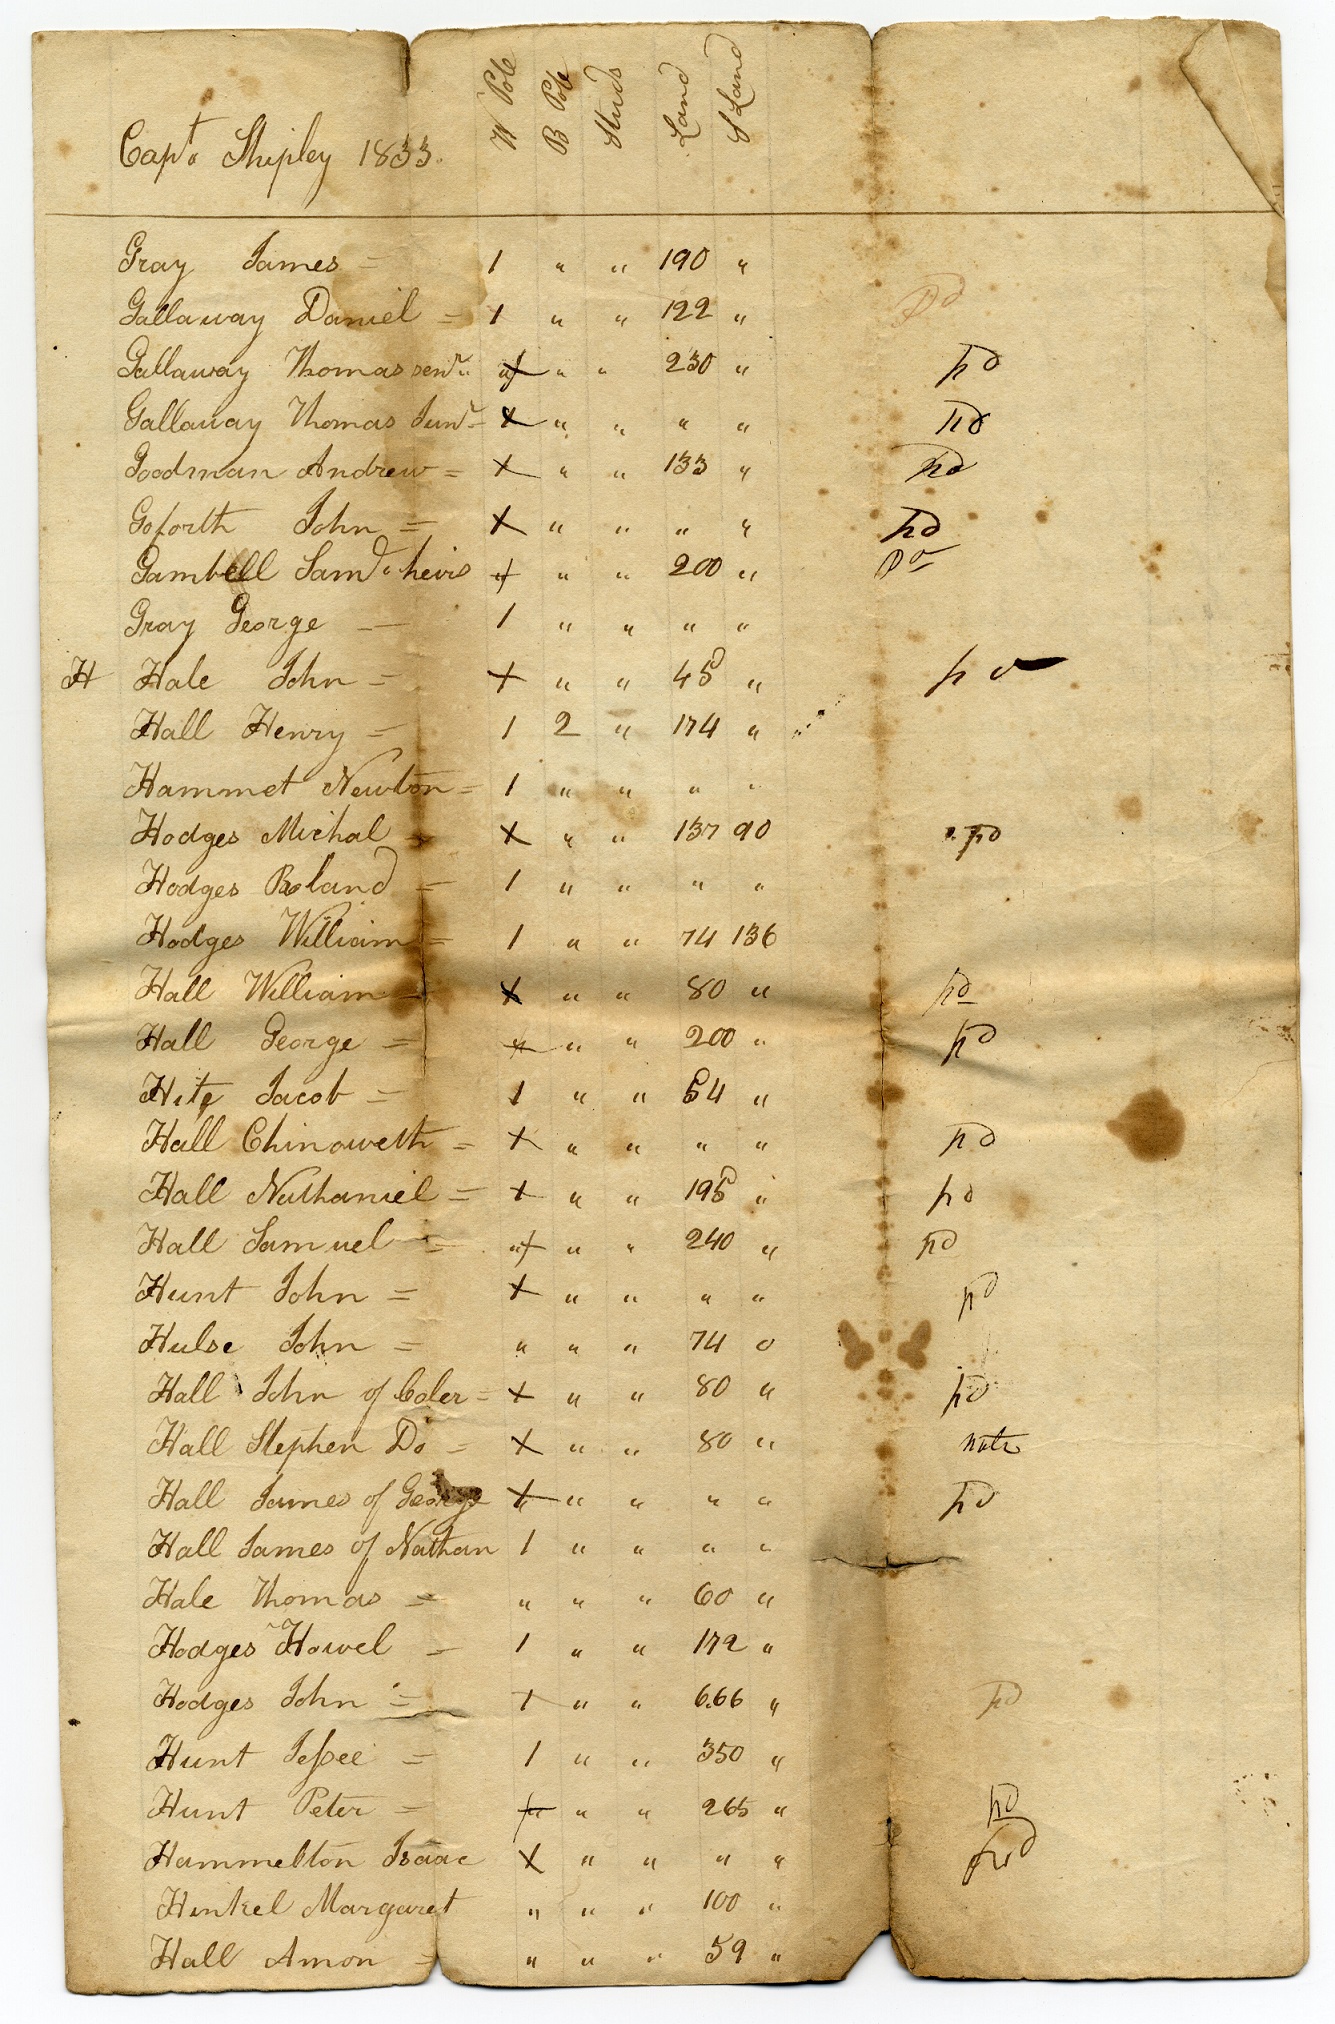 Capt. Shipley 1833. W Pole B Pole Studs Land S Land
Gray James = 1 " " 190 "
Gallaway Daniel = 1 " " 122 " Pd
Gallaway Thomas senr. " " " 230 " pd
Gallaway Thomas Junr = X " " " " pd
Goodman Andrew = X " " 133 " pd
Goforth John = X " " " " pd
Gambell Saml. heirs " " " 200 " pd
Gray George — 1 " " " "
H Hale John = X " " 45 " pd
Hall Henry = 1 2 " 174 "
Hammet Newton = 1 " " " "
Hodges Michal = X " " 137 90 pd
Hodges Roland = 1 " " " "
Hodges William = 1 " " 74 136
Hall William = X " " 80 " pd
Hall George = " " " 200 " pd
Hite Jacob = 1 " " 54 "
Hall Chinoweth = X " " " " pd
Hall Nathaniel = X " " 195 " pd
Hall Samuel = " " " 240 " pd
Hunt John = X " " " " pd
Hulse John = " " " 74 0
Hall John of Coler = X " " 80 " pd
Hall Stephen Do = X " " 80 " note
Hall James of George X " " " " pd
Hall James of Nathan 1 " " " "
Hale Thomas = " " " 60 "
Hodges Howel = 1 " " 172 "
Hodges John = X " " 666 " pd
Hunt Jessee = 1 " " 350 "
Hunt Peter = " " " 265 " pd
Hammelton Isaac X " " " " pd
Henkel Margaret " " " 100 "
Hall Amon = " " " 59 "